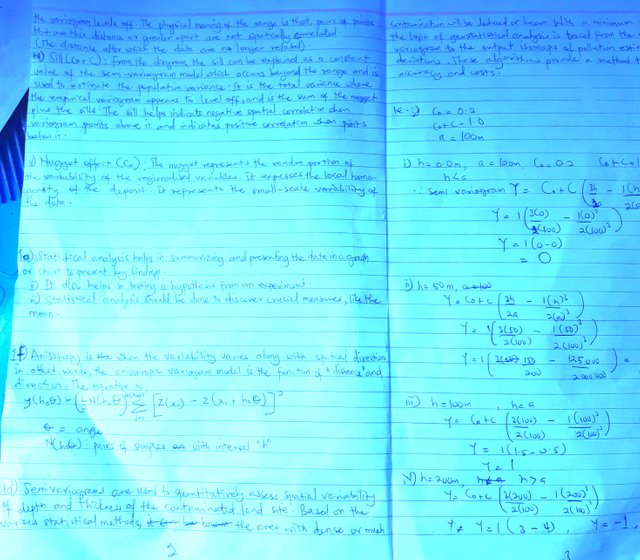 the variogram levels off. The physical meaning of the range is that, pairs of points
that are this distance or greater apart are not spatially correlated.
(The distance after which the data are no longer related).
Sill (Co + C): from the diagram, the sill can be explained as a constant
value of the semi-variogram model which occurs beyond the range and is
used to estimate the population variance. It is the total variance where
the empirical variogram appears to level off, and is the sum of the nugget
plus the sills. The sill helps indicate negative spatial correlation when
variogram points above it and indicates positive correlation when points
below it.
v) Nugget effect (Co): The nugget represents the random portion of
the variability of the regionalised variables. It expresses the local homo-
of the deposit. It represents the small-scale variability of
the data.
1e) i) Statistical analysis helps in summarizing and presenting the data in a graph
or chart to present key findings.
ii) It also helps in testing a hypothesis from an experiment.
iii) Statistical analysis should be done to discover crucial measures, like the
mean.
1f) Anisotropy is when the variability varies along with spatial direction
in other words, the anisotropic variogram model is the function of 'distance' and
direction. The equation is
y(h,θ) = (½N(h,θ)) Σ [Z(xi) - Z(xi + h,θ)]²
θ = angle
N(h,θ): pairs of samples with interval "h"
1d) Semivariograms are used to quantitatively assess spatial variability
of depth and thickness of the contaminated land site. Based on the
various statistical methods, the area with dense or much
3
contamination will be deduced or known. With a minimum
the logic of geostatistical analysis is traced from the
variogram to the output of pollution
deviations. These algorithms provide a method
accuracy and costs.
Co = 0.2
Co + C = 1.0
a = 100m
i) h = 0.0m, a = 100m, Co = 0.2 Co + C = 1
h < a
∴ Semi variogram γ = Co + C (3h/2a - 1(h
γ = 1 (3(0)/2(100) - 1(0)³/2(100)³)
γ = 1 (0-0)
= 0
ii) h = 50m,
γ = Co + C (3h/2a - 1(h)³/2(a)³)
γ = 1 (3(50)/2(100) - 1(50)³/2(100)³)
γ = 1 (150/200 - 125,000/2,000,000) =
iii) h = 100m, h = a
γ = Co + C (3(100)/2(100) - 1(100)³/2(100)³)
γ = 1 (1.5 - 0.5)
γ = 1
iv) h = 200m, h > a
γ = Co + C (3(200)/2(100) - 1(200)³/2(100)
γ = 1 (3 - 4), γ = -1